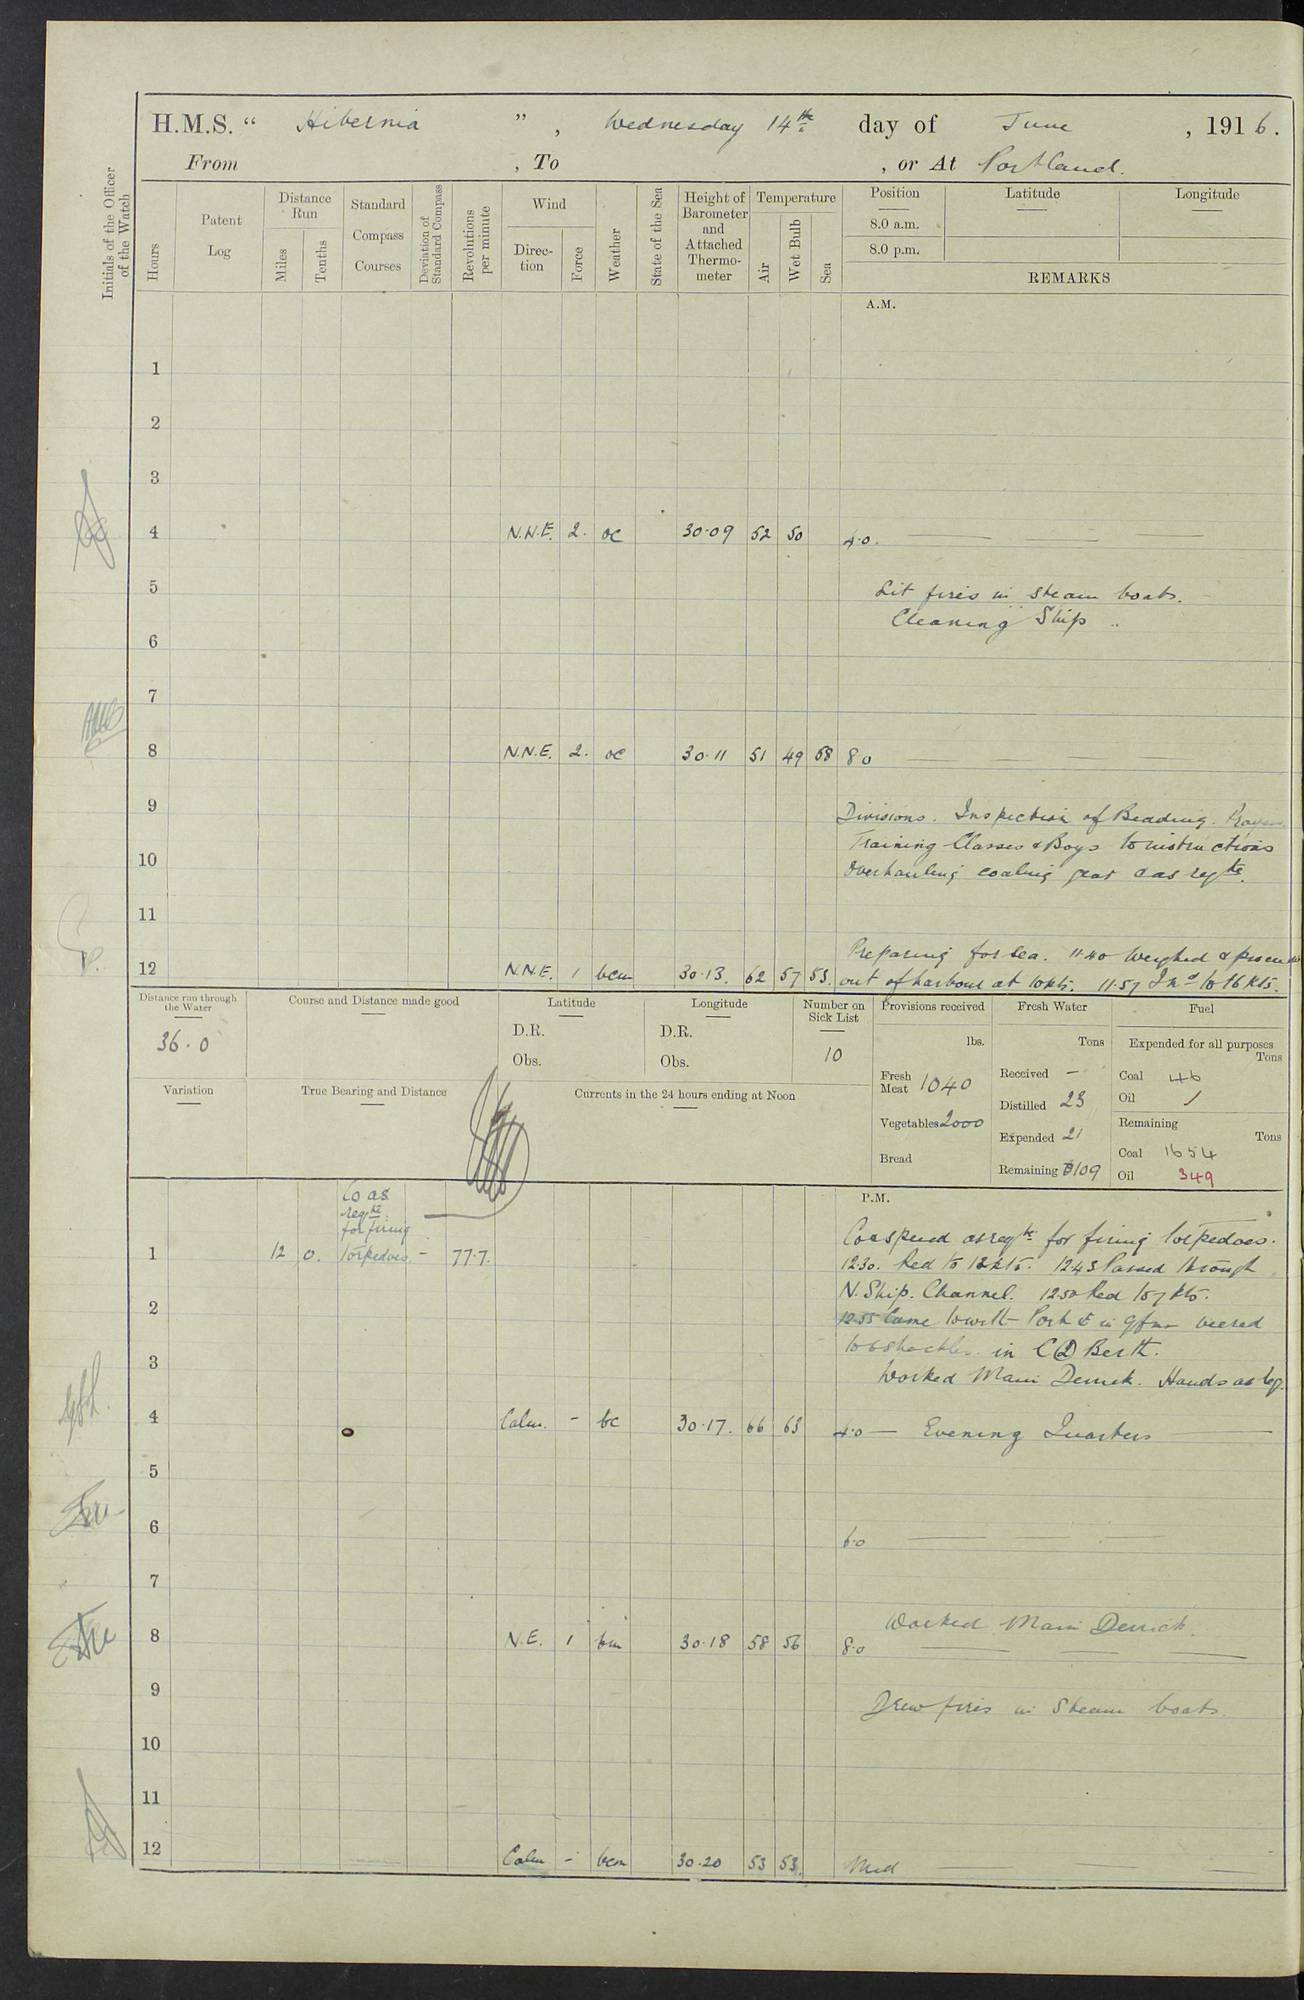 H.M.S. " Hibernia " , Wednesday 14th day of June , 1916.
From , To , or At Portland.
Initials of the Officer of the Watch
Hours
Patent Log
Distance Run
Miles
Tenths
Standard Compass Courses
Deviation of Standard Compass
Revolutions per minute
Wind
Direc-tion
Force
Weather
State of the Sea
Height of Barometer and Attached Thermo-meter
Temperature
Air
Wet Bulb
Sea
Position
8.0 a.m.
8.0 p.m.
Latitude
Longitude
REMARKS
A.M.
1
2
3
4 N.N.E. 2. oc 30.09 52 50 4.0.
5 Lit fires in steam boats.
Cleaning Ship ..
6
7
8 N.N.E. 2. oc 30.11 51 49 58 8.0
9 Divisions. Inspection of Bedding. Prayers.
Training Classes & Boys to instructions
10 Overhauling coaling gear & as reqte.
11
Preparing for sea. 11.40 Weighed & proceeded
12 N.N.E. 1 bcm 30.13. 62 57 53. out of harbour at 10 kts. 11.57 Incd to 16 kts.
Distance run through the Water
36.0
Course and Distance made good
Latitude
D.R.
Obs.
Longitude
D.R.
Obs.
Number on Sick List
10
Provisions received
lbs.
Fresh Meat 1040
Vegetables 2000
Bread
Fresh Water
Tons
Received -
Distilled 23
Expended 21
Remaining 109
Fuel
Expended for all purposes
Tons
Coal 46
Oil 1
Remaining
Tons
Coal 1654
Oil 349
Variation
True Bearing and Distance
Currents in the 24 hours ending at Noon
P.M.
Co as
reqte
for firing
1 12 0. torpedoes. - 77.7.
Co & speed as reqte for firing torpedoes.
12.30. Red to 12 kts. 12.43 Passed through
N. Ship. Channel. 12.50 Red to 7 kts.
2 12.55 Came to with Port in 9 fms veered
to 6 shackles in C(2) Berth.
3 Worked Main Derrick. Hands as req.
4 Calm. - bc 30.17. 66 63 4.0 — Evening Quarters
5
6 6.0
7
Worked Main Derrick.
8 N.E. 1 bm 30.18 58 56 8.0
9 Drew fires in Steam boats.
10
11
12 Calm - bcm 30.20 53 53. Mid